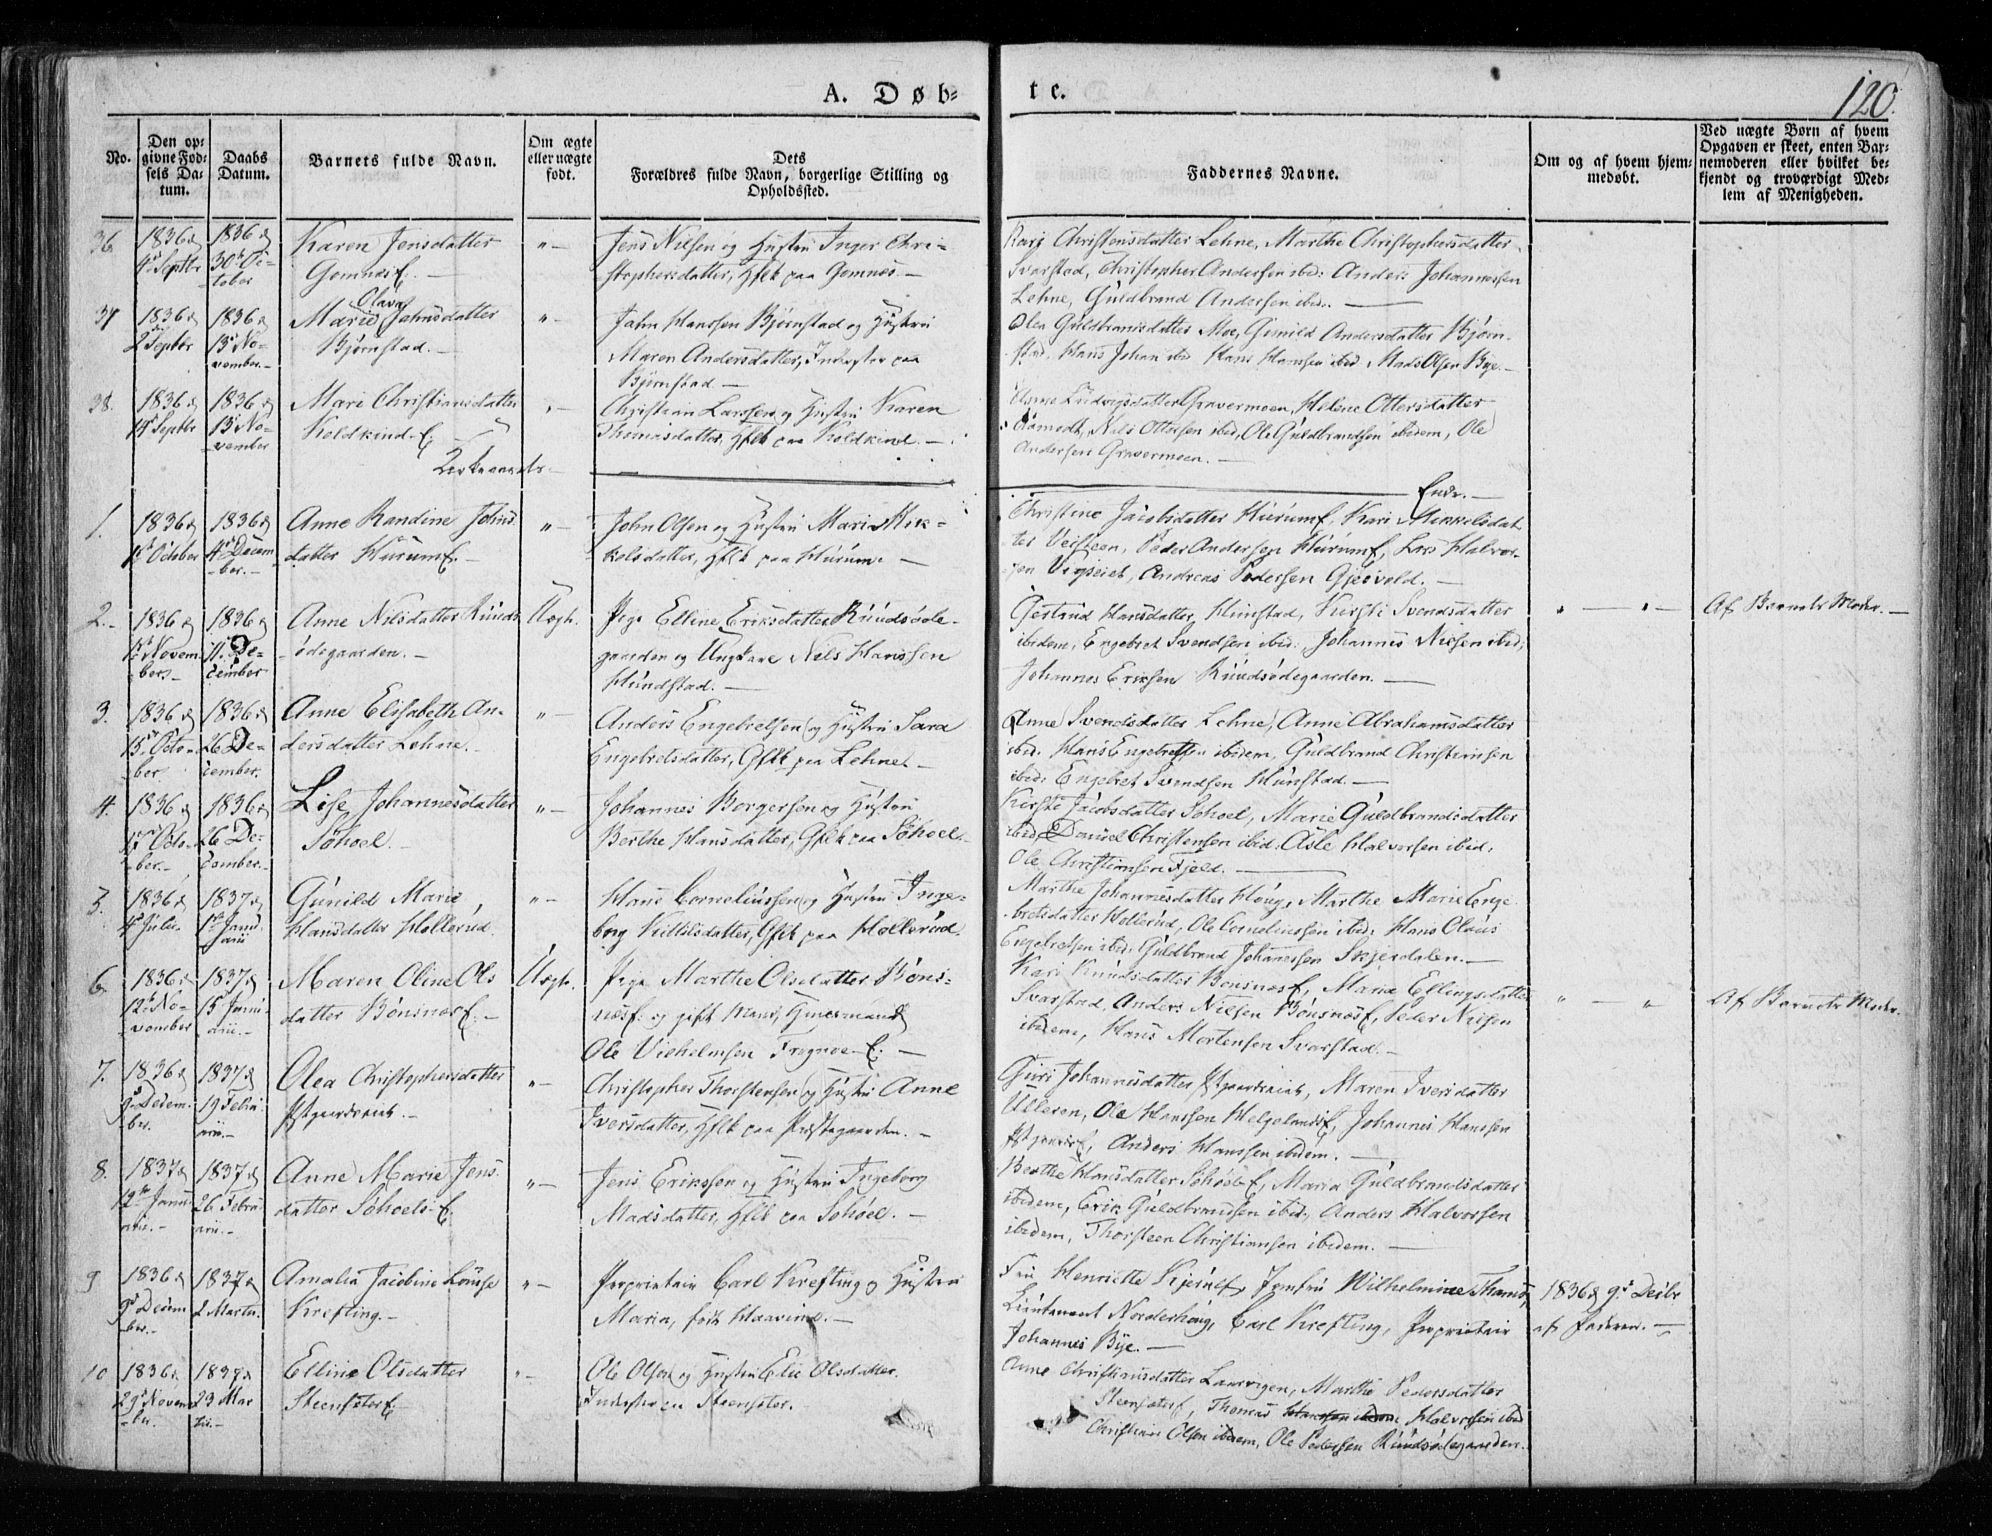 A. Døb-
te.
120.
No.
Den op-
givne Fød-
sels Da-
tum.
Daabs
Datum.
Barnets fulde Navn.
Om ægte
eller uægte
født.
Dets
Forældres fulde Navn, borgerlige Stilling og
Opholdssted.
Faddernes Navne.
Om og af hvem hjem-
medøbt.
Ved uægte Børn af hvem
Opgaven er skeet, enten Bar-
nemoderen eller hvilket be-
kjendt og troværdigt Med-
lem af Menigheden.
36
1836 d
4de Septbr
1836 d
30te Oc-
tober
Karen Jensdatter
Gomnæs
"–
Jens Nielsen og Hustru Inger Chri-
stophersdatter, Hflk paa Gomnæs.–
Kari Christensdatter Lehne, Marthe Christophersdatter
Svarstad, Christopher Andersen ibid: Anders Johannessen
Lehne, Guldbrand Andersen ibid. –
37
1836 d
2den Septbr
1836 d
13de No-
vember.–
Olava
Marie Jahnsdatter
Bjørnstad.–
"–
Jahn Hanssen Bjørnstad og Hustru
Maren Andersdatter, Inderster paa
Bjørnstad –
Olea Guldbransdatter Moe, Gunild Andersdatter Bjørn-
stad, Hans Johan ibid Hans Hansen ibid Mads Olsen Bye.–
38.
1836 d
14de Septbr
1836 d
13de No-
vember
Mari Christiansdatter
Koldkind
"–
Christian Larssen og Hustru Karen
Thomasdatter, Hflk paa Koldkind.–
Ludvigsdatter Gravermoen, Helene Ottersdatter
Aamodt, Nils Ottersen ibid, Ole Guldbrandsen ibidem, Ole
Andersen Gravermoen.–
1.
1836 d
October
1836 d
4de Decem-
ber.–
Anne Randine Johns-
datter Hurum
"–
John Olsen og Hustru Mari Mik-
kelsdatter, Hflk paa Hurum. –
Christine Jacobsdatter Hurum, Kari Mikkelsdat-
ter Veisteen, Peder Andersen Hurum, Lars Halvor-
sen, Andreas Pedersen Gjesvold.–
2.–
1836 d
Novem-
ber.–
1836 d
De-
cember
Anne Nilsdatter Ruuds-
ødegaarden.–
Uægt.
Pige Elline Eriksdatter Ruudsøde-
gaarden og Ungkarl Nils Hanssen
Hundstad.–
Gertrud Hansdatter Hunstad, Kirsti Svendsdatter
ibidem, Engebret Svendsen ibid:, Johannes Nielsen ibid,
Johannes Eriksen Ruudsødegaarden.–
" – " –
Af Barnets Moder.–
3.
1836 d
15de Octo-
ber
1836 d
26 De-
cember.
Anne Elisabeth An-
dersdatter Lehne.
"–
Anders Engebretsen og Hustru Sara
Engebretsdatter, Gflk paa Lehne.–
Anne Svendsdatter Lehne, Anne Abrahamsdatter
ibid. Hans Engebretsen ibidem, Guldbrand Christensen
ibid: Engebret Svendsen Hunstad.–
4.
1836 d
Octo-
ber.–
1836 d
26 De-
cember.
Lise Johannesdatter
Søhoel.
"–
Johannes Borgersen og Hustru
Berthe Hansdatter, Gflk paa Søhoel.
Kirsti Jacobsdatter Søhoel, Marie Guldbrandsdatter
ibid, Daniel Christensen ibid: Asle Halvorsen ibid,
Ole Christiansen Fjeld.–
5.
1836 d
4de Julii.
1837 d
1ste Janu-
arii
Gunild Marie
Hansdatter Hollerud.
"–
Hans Corneliussen og Hustru Inge-
borg Kittilsdatter, Gflk paa Hollerud.
Marthe Johannesdatter Houg, Marthe Marie Enge-
bretsdatter Hollerud, Ole Corneliussen ibid: Hans Olaus
Engebretsen ibid: Guldbrand Johannessen Skjerdalen.–
6.
1836 d
12te No-
vember
1837 d
15 Janu-
arii.–
Maren Oline Ols-
datter Bønsnæs.–
Uægt.
Pige Marthe Olsdatter Bøns-
næs og gift Mand, Huusmand
Ole Vilhelmsen Trognæs.–
Kari Knudsdatter Bønsnæs, Maria Ellingsdatter
Svarstad, Anders Nielsen Bønsnæs, Peder Nielsen
ibidem, Hans Mortensen Svarstad.–
" – "
Af Barnets Moder.
7.
1836 d
9de Decem-
ber.
1837 d
19 Febru-
arii.–
Olea Christophersdatter
"–
Christopher Thorstensen og Hustru Anne
Iversdatter, Hflk paa Præstegaarden.–
Guri Johannesdatter, Maren Iversdatter
Ulleren, Ole Hanssen Helgeland, Johannes Hanssen
Anders Hanssen ibidem.–
8.
1837 d
12te Janu-
arii.–
1837 d
26 Febru-
arii.–
Anne Marie Jens-
datter Søhoel
"–
Jens Erikssen og Hustru Ingeborg
Madsdatter, Hflk paa Søhoel.–
Berthe Hansdatter Søhoel, Maria Guldbrandsdatter
ibidem, Erik Guldbrandsen ibid:, Anders Halvorsen
ibidem, Thorsteen Christiansen ibidem.–
9
1836 d
9de Decem-
ber.–
1837 d
2 Martii.
Amalia Jacobine Louise
Krefting.–
"–
Proprietair Carl Krefting og Hustru
Maria, født.–
Fru Henriette Kjerulf, Jomfru Wilhelmine
Lieutenant Norderhoug, Carl Krefting, Proprietair
Johannes Bye.–
1836 d 9de Decbr
af Faderen.–
10
1836 d
29de Novem-
ber.
1837 d
23 Mar-
tii.–
Elline Olsdatter
Steensæter
"–
Ole Olsen og Hustru Elie Olsdatter
Inderster paa Steensæter.
Anne Christiansdatter, Marthe Pedersdatter
Steensæter, Thomas Halvorsen ibid
Christian Olsen ibidem, Ole Pedersen Ruudsødegaarden.